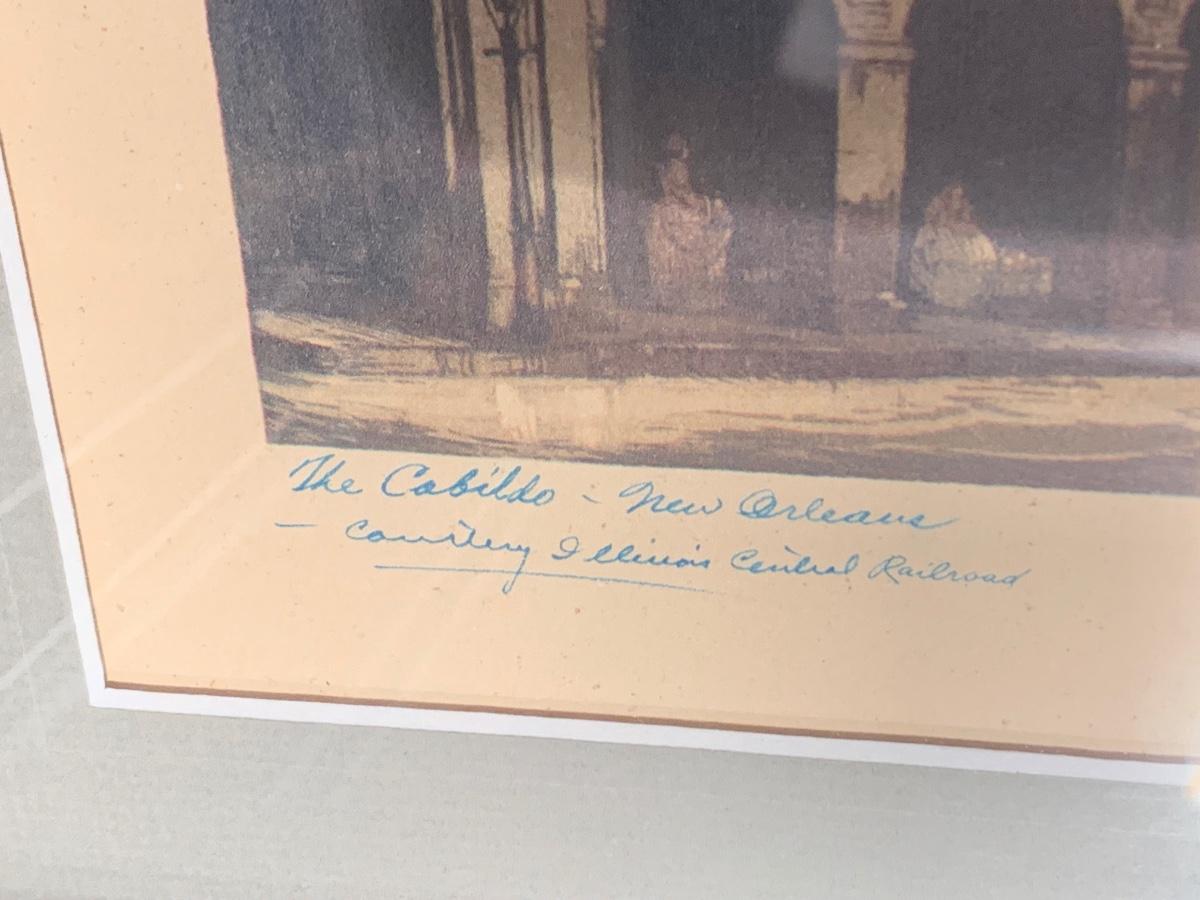 The Cabildo - New Orleans
- Courtesy Illinois Central Railroad